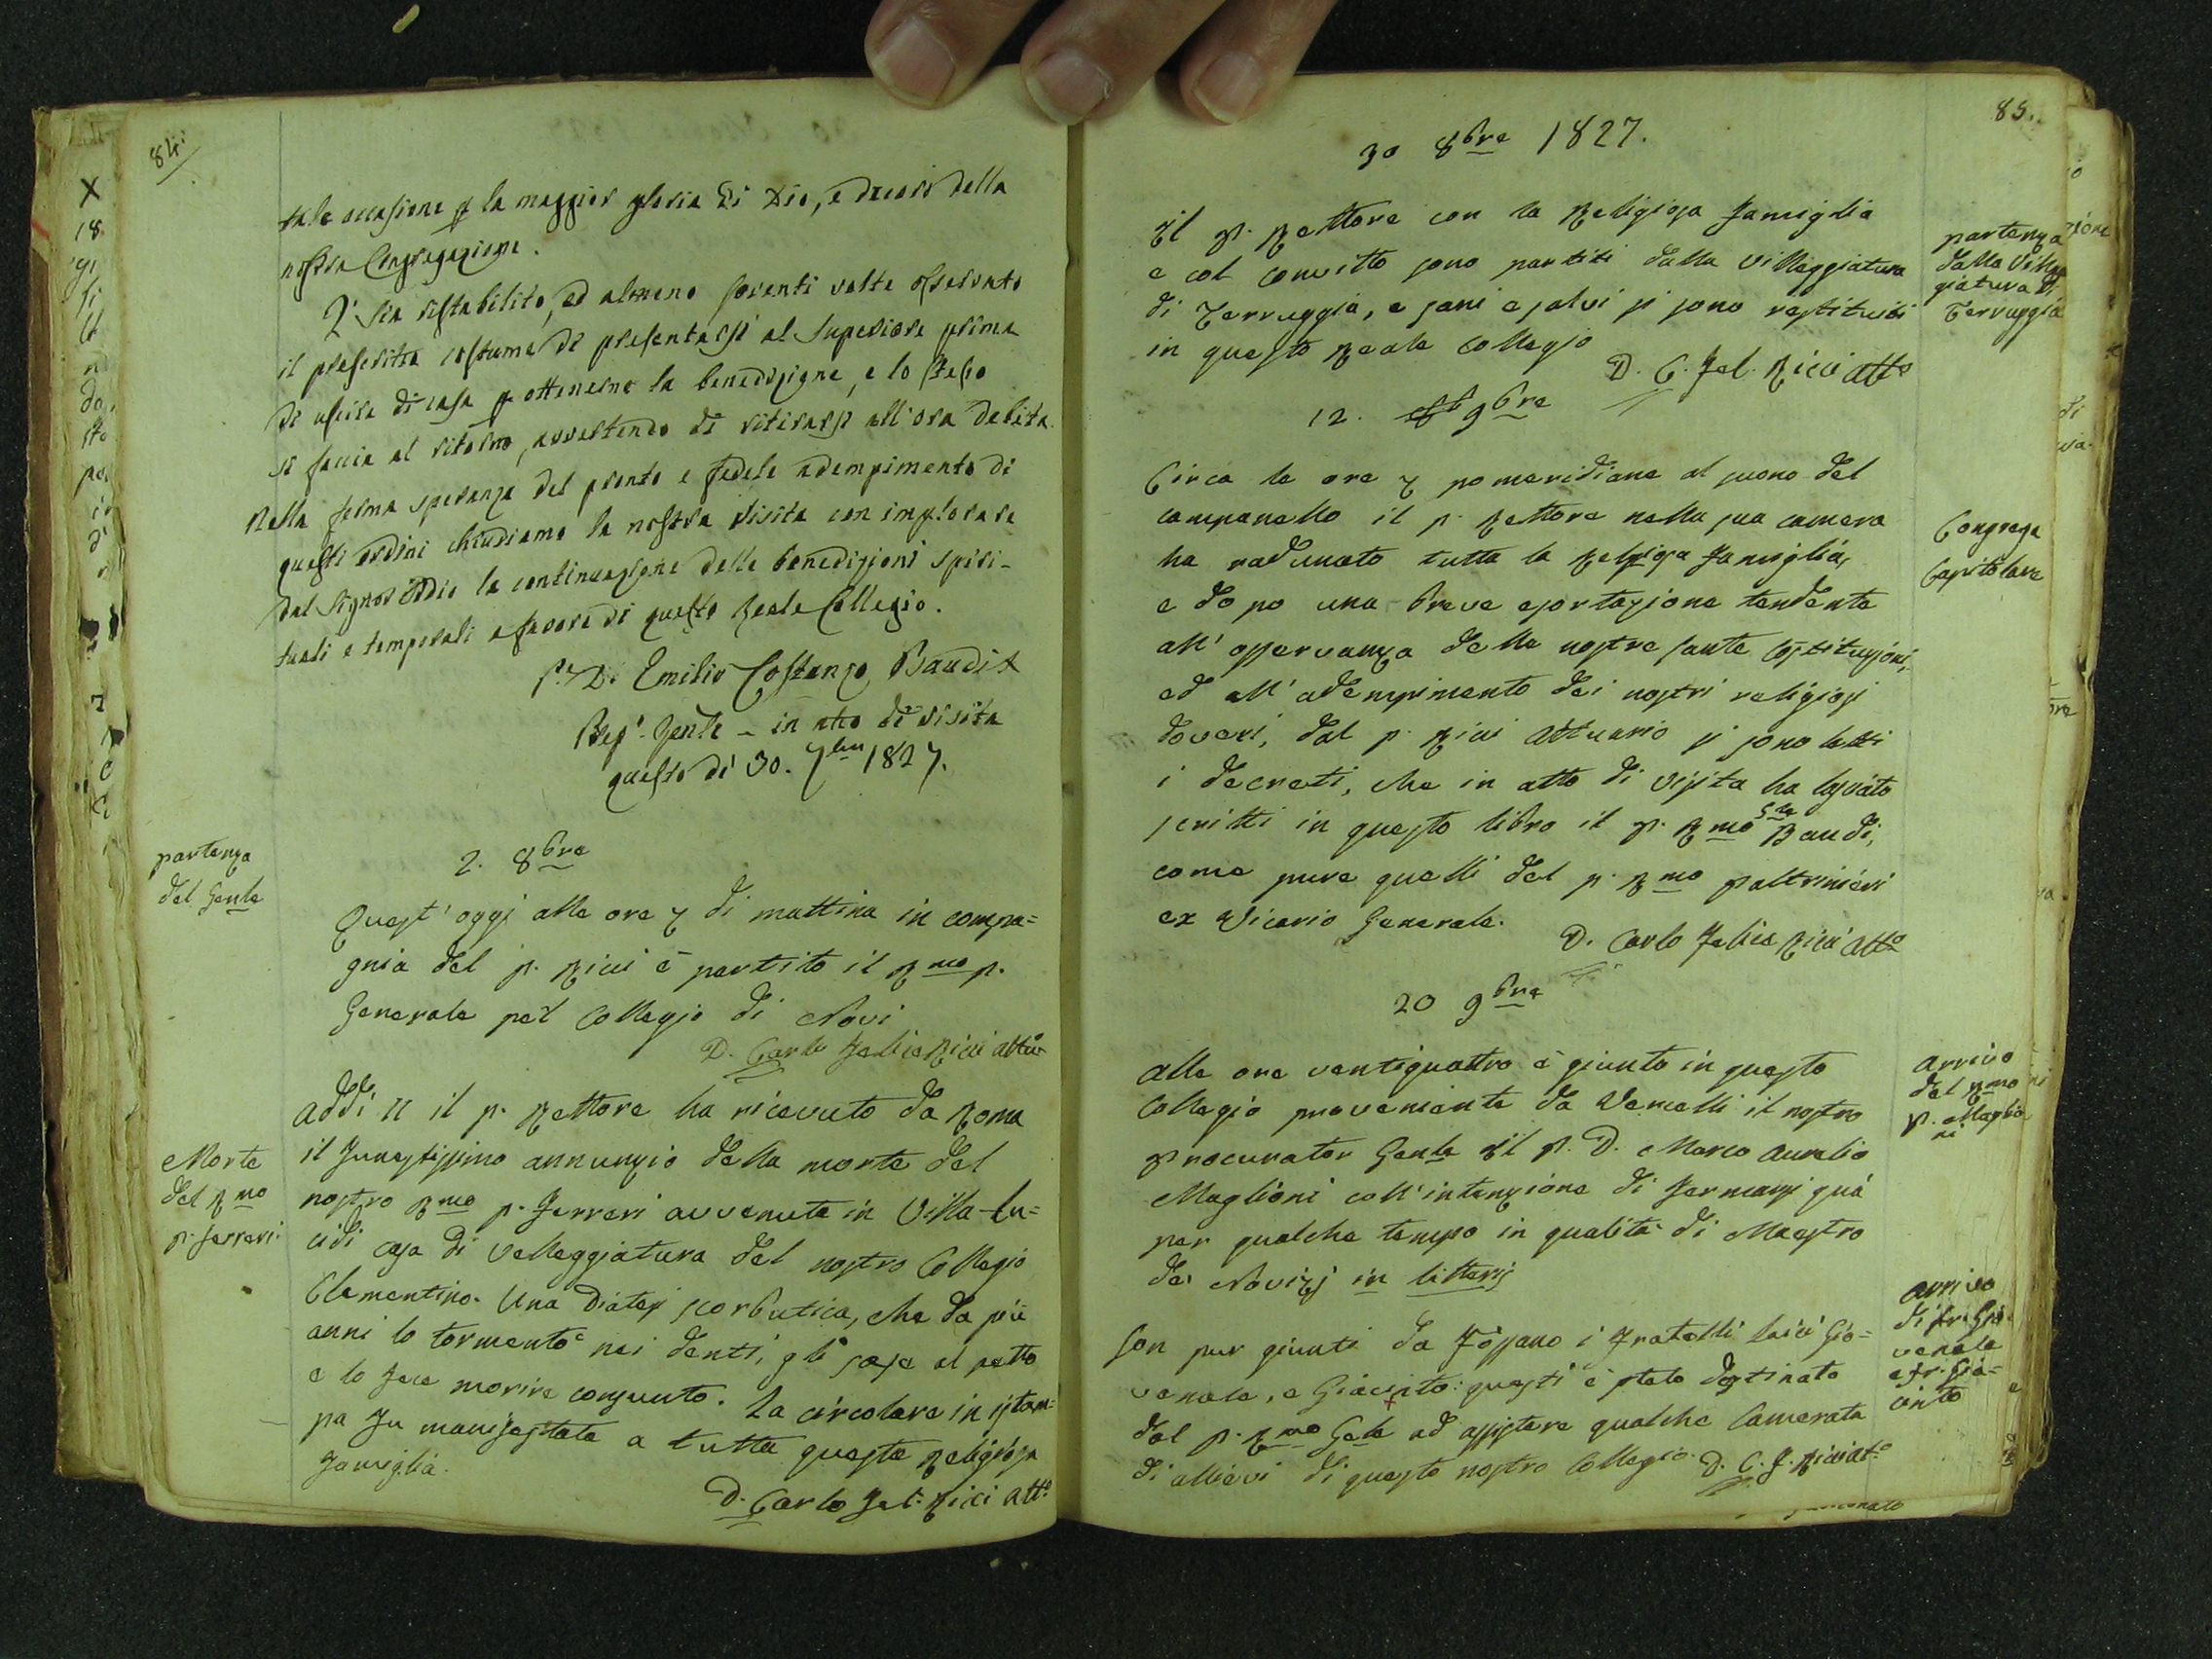 84.
tale occasione p la maggior gloria di Dio, e decoro della
nostra Congregazione.
2.° Sia ristabilito, ed almeno soventi volte osservato
il prescritto costume di presentarsi al Superiore prima
di uscire di casa p ottenerne la benedizione, e lo stesso
si faccia al ritorno, avvertendo di ritirarsi all'ora debita.
Nella ferma speranza del pronto e fedele adempimento di
questi ordini chiudiamo la nostra visita con implorare
dal Signor Iddio la continuazione delle benedizioni spiri-
tuali e temporali a favore di questo Reale Collegio.
D. Emilio Costanzo Baudi
Prep.° Gen.le - in atto di visita
questo dì 30. 7bre 1827.
partenza
del Genle
2. 8bre
Quest'oggi alle ore 7 di mattina in compa=
gnia del p. Ricci è partito il Rmo p.
Generale pel Collegio di Novi
D. Carlo Felice Ricci att.°
Morte
del Rmo
p. Ferreri.
Addì 11 il p. Rettore ha ricevuto da Roma
il funestissimo annunzio della morte del
nostro Rmo p. Ferreri avvenuta in Villa-Lu=
cidi casa di velleggiatura del nostro Collegio
Clementino. Una diatesi scorbutica, che da più
anni lo tormentò nei denti, gli scese al petto
e lo fece morire consunto. La circolare in istam=
pa fu manifestata a tutta questa Religiosa
famiglia.
D. Carlo Fel. Ricci Att.°
85.
30 8bre 1827.
partenza
dalla Villeg
giatura di
Terruggia
Il p. Rettore con la Religiosa famiglia
e col convitto sono partiti dalla villeggiatura
di Terruggia, e sani e salvi si sono restituiti
in questo Reale Collegio
D. C. Fel. Ricci Att.°
12. 9bre
Congrega
Capitolare
Circa le ore 7 pomeridiane al suono del
campanello il p. Rettore nella sua camera
ha radunato tutta la Religiosa famiglia,
e dopo una breve esortazione tendente
all'osservanza delle nostre sante Costituzioni,
ed all'adempimento dei nostri religiosi
doveri, dal p. Ricci Attuario si sono letti
i decreti, che in atto di visita ha lasciato
scritti in questo libro il p. Rmo Gnle Baudi,
come pure quelli del p. Rmo Paltrinieri
ex Vicario Generale.
D. Carlo Felice Ricci Att.°
20 9bre
arrivo
del Rmo
p. Maglio
ni
Alle ore ventiquattro è giunto in questo
Collegio proveniente da Vercelli il nostro
Procurator Genle il P. D. Marco Aurelio
Maglioni coll'intenzione di fermarsi quà
per qualche tempo in qualità di Maestro
dei Novizj in litteris
arrivo
di fr. Gio=
venale
e fr. Gia=
cinto
Son pur giunti da Fossano i fratelli laici Gio=
venale, e Giacinto: questi è stato destinato
dal p. Rmo Genle ad assistere qualche Camerata
di allievi di questo nostro Collegio. D. C. F. Ricci Att.°